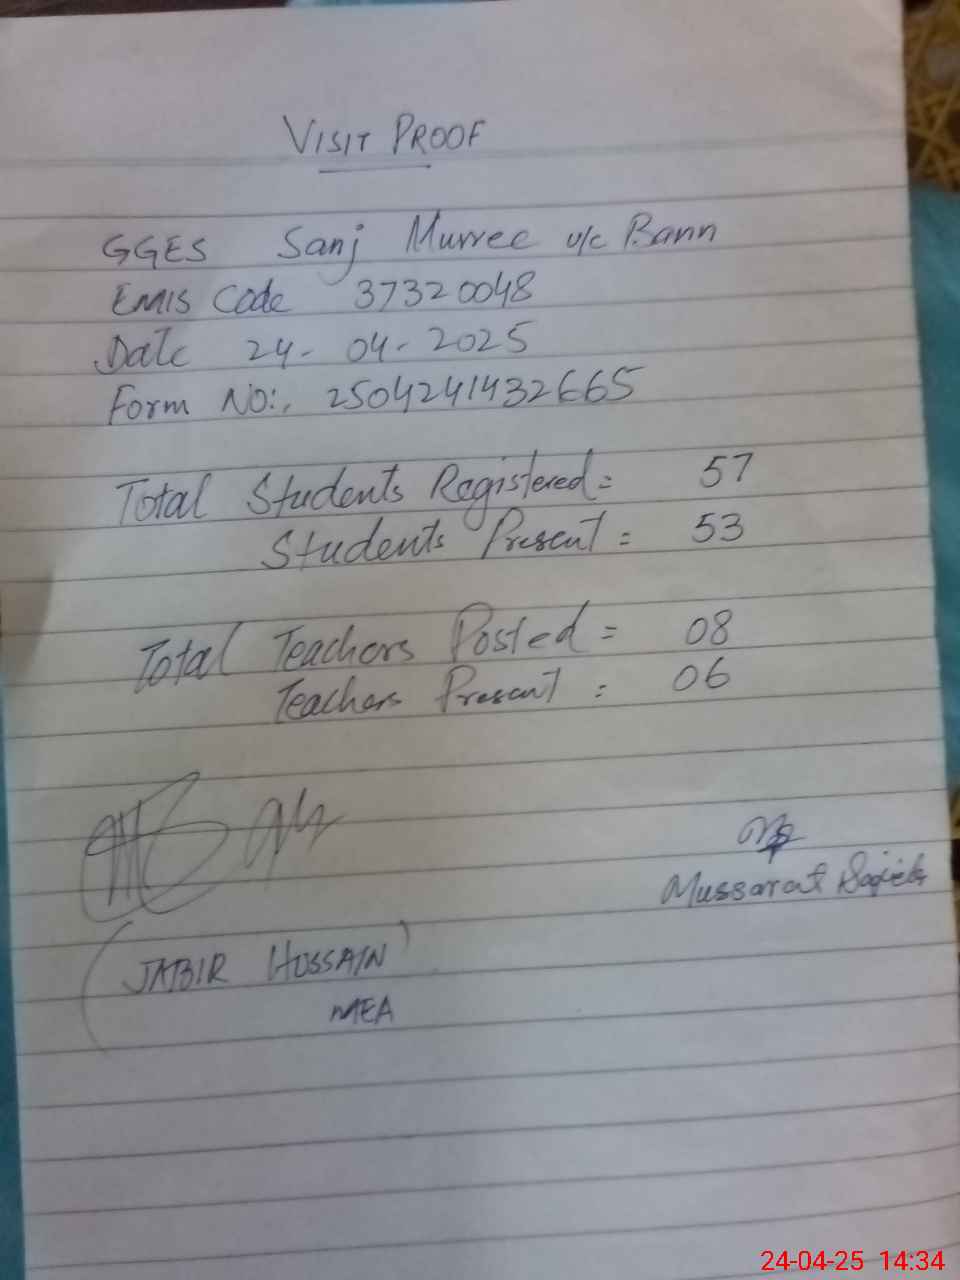 VISIT PROOF
GGES Sanj Murree u/c Bann
EMIS Code 37320048
Date 24-04-2025
Form NO:, 2504241432665
Total Students Registered = 57
Students Present = 53
Total Teachers Posted = 08
Teachers Present = 06
Mussarat
(JABIR HUSSAIN)
MEA
24-04-25 14:34